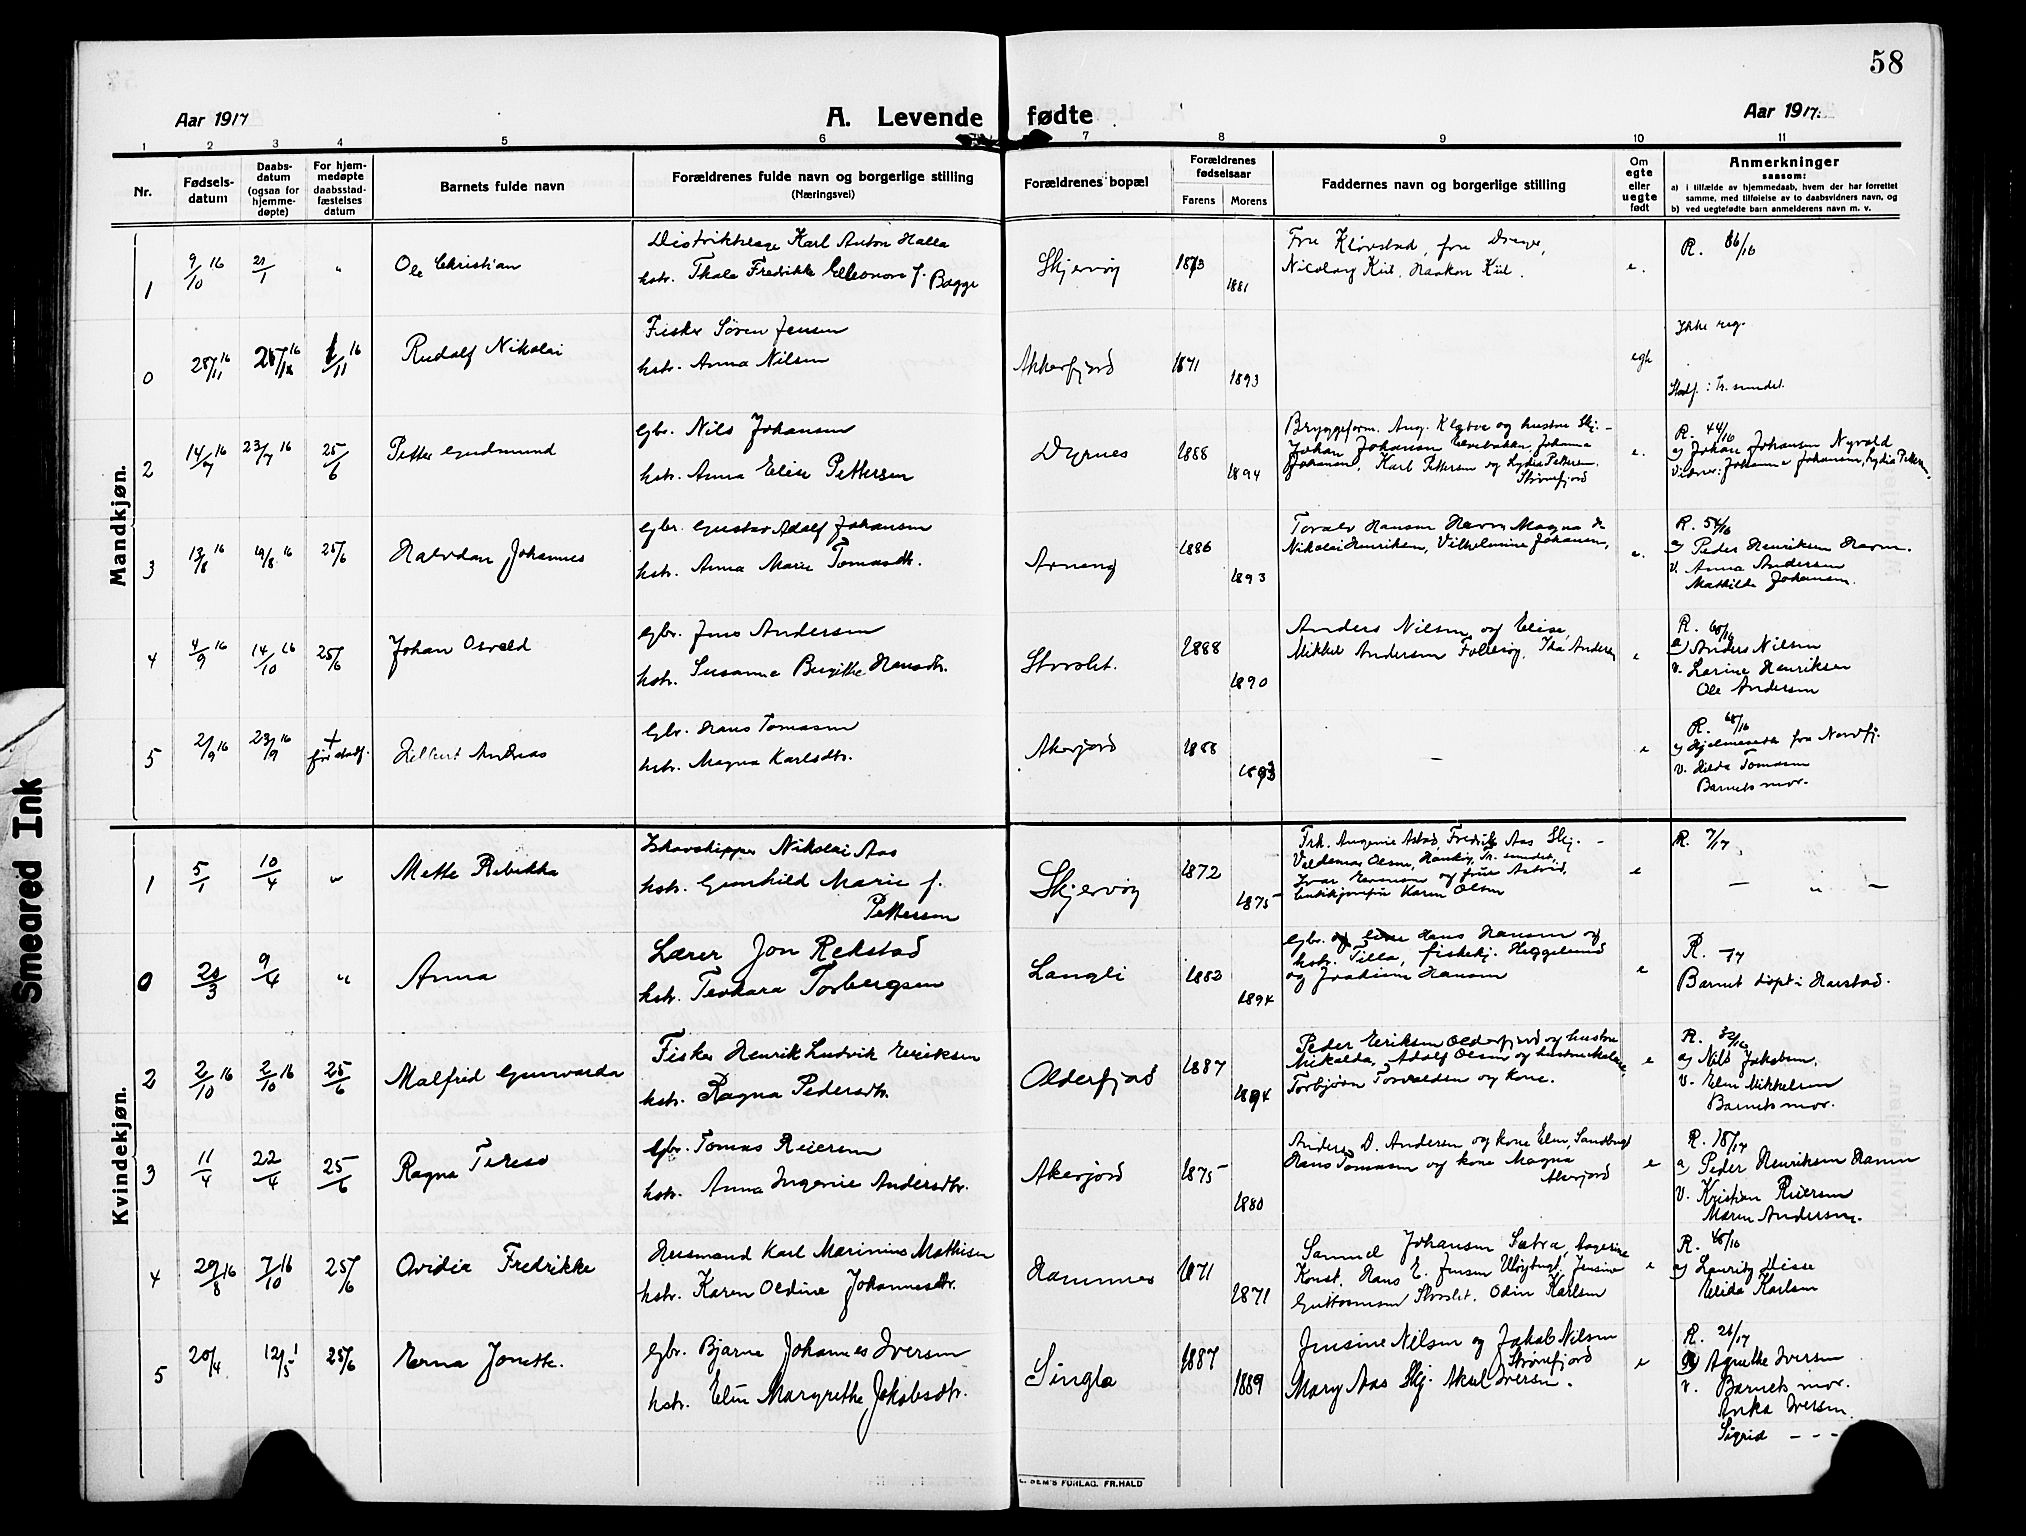 58
Aar 1917
A. Levende fødte
Aar 1917.
1 2 3 4 5 6 7 8 9 10 11
Nr.
Fødsels-
datum
Daabs-
datum
(ogsaa for
hjemme-
døpte)
For hjem-
medøpte
daabsstad-
fæstelses
datum
Barnets fulde navn
Forældrenes fulde navn og borgerlige stilling
(Næringsvei)
Forældrenes bopæl
Forældrenes
fødselsaar
Farens Morens
Faddernes navn og borgerlige stilling
Om
egte
eller
uegte
født
Anmerkninger
saasom:
a) i tilfælde av hjemmedaab, hvem der har forrettet
samme, med tilføielse av to daabsvidners navn, og
b) ved uegtefødte barn anmelderens navn m. v.
Mandkjøn.
1 9/10 16 21/1 " Ole Christian
Distriktslæge Karl Anton Halla
hstr. Thale Fredrikke Elleonore f. Bagge
Skjervøy 1873 1881
Fru Kløvstad, fru
Nicolay Kiil, Haakon Kiil.
e.
R. 86/16
0 25/11 16 Rudolf Nikolai
Fisker Søren Jensen
hstr. Anna Nilsen
Akkerfjord 1871 1893
egte
Ikke reg.
Stadf: Tr. sundet.
2 14/7 16 23/7 16 25/6 Petter Gudmund
Gbr. Nils Johansen
hstr. Anna Elise Pettersen
Dyrnes 1888 1894
Bryggeform. Aug. og hustru Skj.
Johan Johansen Johanna
Johansen, Karl Pettersen og Lydia Pettersen.
Strømfjord
e.
R. 44/16
a) Johan Johansen Nyvold
Vidner: Johanna Johansen, Lydia Pettersen.
3 13/8 16 19/8 16 25/6 Halvdan Johannes
Gbr. Gustav Adolf Johansen
hstr. Anna Marie Tomasdtr.
Arnøng 1886 1893
Toralv Hansen Havn Magna
Nikolai Henriksen, Vilhelmine Johansen,
e.
R. 54/16
a) Peder Henriksen Havn.
v. Anna Andersen
Mathilde Johansen.
4 4/9 16 14/10 16 25/6 Johan Osvald
Gbr. Jens Andersen
hstr. Susanna Birgitte Hansdtr.
Storslet. 1888 1890
Anders Nilsen og Elise,
Mikkel Andersen Follesøy, Ida Anders
e
R. 65/16
a) Anders Nilsen
v. Larine Henriksen
Ole Andersen
5 2/9 16 23/9 16 + før stadf. Hilbert Andreas
Gbr. Hans Tomasen
hstr. Magna Karlsdtr.
Akerfjord 1888 1893
–
e
R. 68/16
a) fra Nordfj.
v. Hilda Tomasen
Barnets mor.
Kvindekjøn.
1 5/1 10/4 " Mette Rebekka
Ishavsskipper Nikolai Aas
hstr. Gunhild Marie f.
Pettersen
Skjervøy 1872 1875
Frk. Augenie Astad, Fredrik Aas Skj. –
Valdemar Olsen, Tr. sundet,
Ivar Evensen og frue Astrid,
Karen Olsen
e
R. 7/17
– " –
0 20/3 9/4 " Anna
Lærer Jon Rekstad
hstr. Tevkara Torbergsen
Langli 1882 1894
Gbr. Hans Hansen og
hstr. Tilla, fiskekj. Heggelund
og Joakim Hansen
e
R. –17
Barnet døpt i Harstad.
2 2/10 16 2/10 16 25/6 Malfrid Gunvarda
Fisker Henrik Ludvik Eriksen
hstr. Ragna Pedersdtr.
Olderfjord 1887 1894
Peder Eriksen Olderfjord og hustru
Mikalda, Adolf Olsen og hustru
Torbjørn Torvaldsen og kone.
e
R. 32/16
a) Nils Jakobsen.
v. Elen Mikkelsen
Barnets mor.
3 11/4 22/4 25/6 Ragna Terese
Gbr. Tomas Reiersen
hstr. Anna Ingenie Andersdtr.
Akerfjord 1875 1880
Anders D. Andersen og kone Elen, Sandbugt
Hans Tomasen og kone Magna
Akerfjord
e
R. 18/17
a) Peder Henriksen Hamn
v. Kristian Reiersen
Maren Andersen.
4 29/8 16 7/10 16 25/6 Ovidia Fredrikke
Husmand Karl Marinius Mathisen
hstr. Karen Oldine Johannesdtr.
Hamnnes 1871 1871
Samuel Johansen Sætra,
Konst. Hans E. Jensen Uløybugt, Jensine
Guttormsen Storslet. Odin Karlsen
e
R. 45/16
a) Lauritz Disse
Elida Karlsen
5 20/4 12/5 25/6 Erna Jonette.
Gbr. Bjarne Johannes Iversen
hstr. Elen Margrethe Jakobsdtr.
Singla 1887 1889
Jensine Nilsen og Jakob Nilsen
Strømfjord
Mary Aas Skj. Aksel Iversen.
e
R. 26/17
a) Agnethe Iversen
v. Barnets mor.
Anka Iversen.
Sigrid – – –
E. SEM'S FORLAG. FR.HALD
Smeared Ink